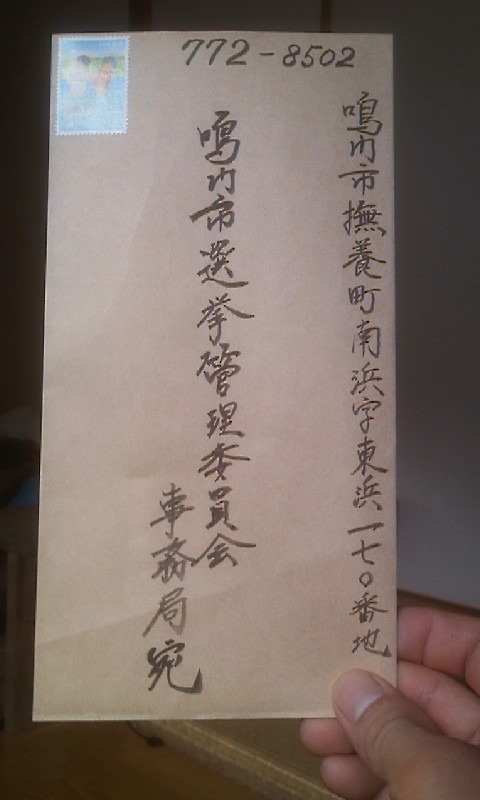 772-8502
鳴門市撫養町南浜字東浜一七〇番地
鳴門市選挙管理委員会
事務局宛